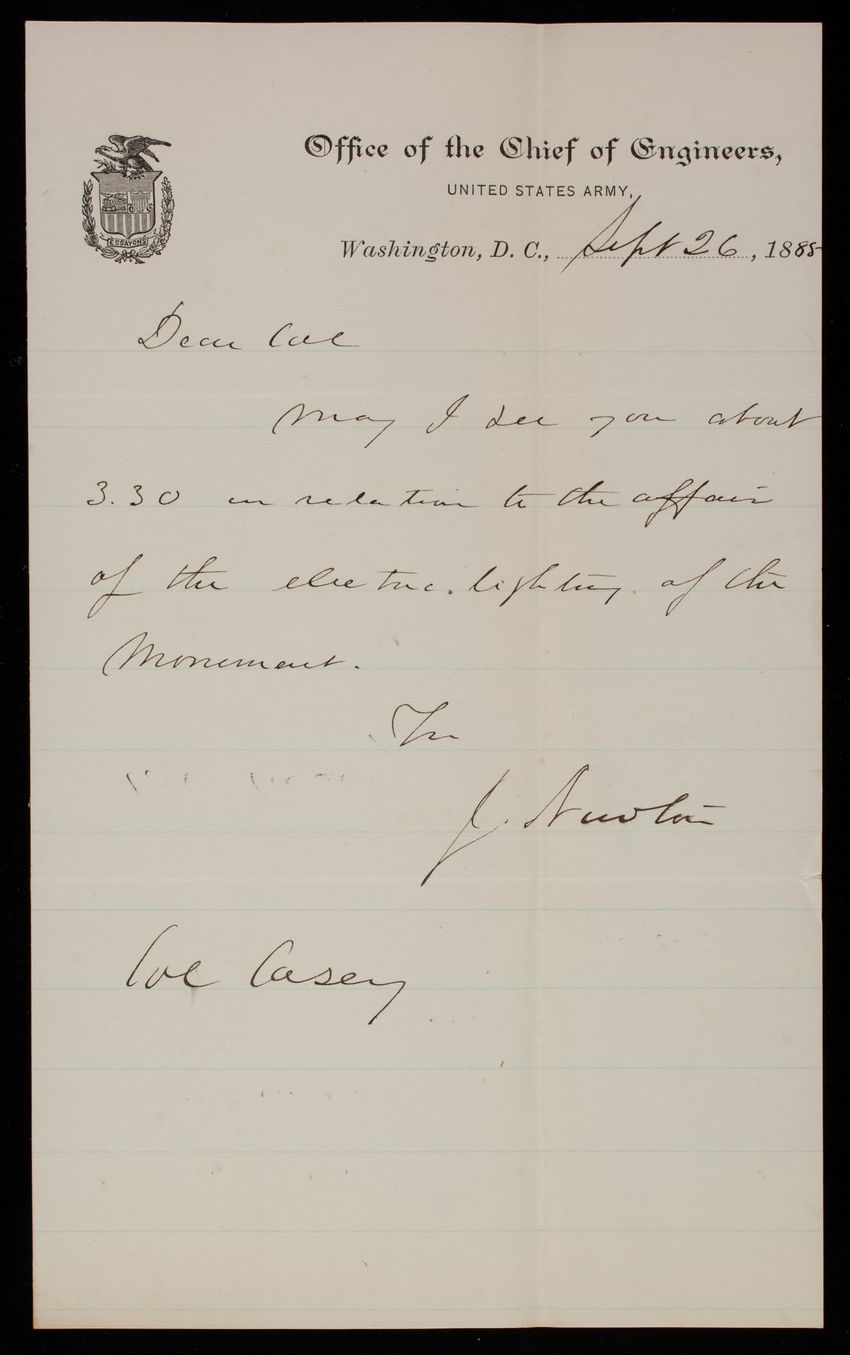 Office of the Chief of Engineers,
UNITED STATES ARMY,
Washington, D. C., Sept 26, 1885
ESSAYONS
Dear Col
May I see you about
3.30 in relation to the affair
of the electric lighting of the
Monument.
J. Newton
Col Casey